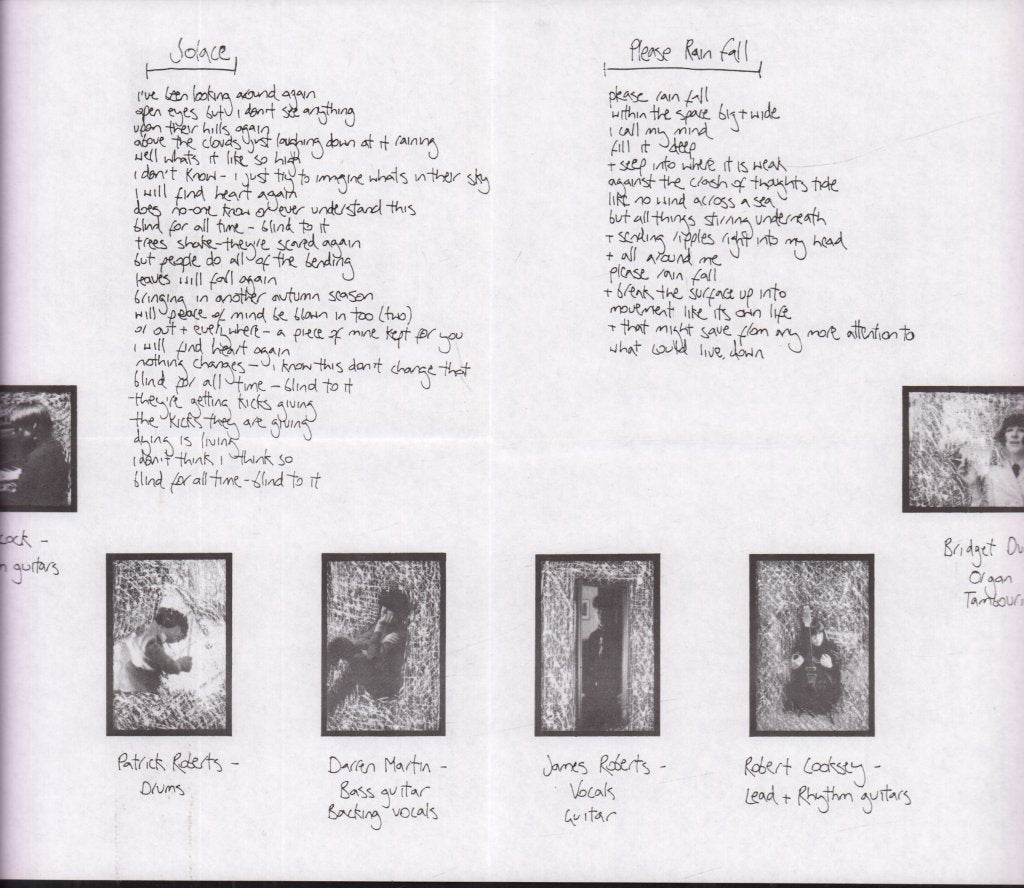 Solace
i've been looking around again
open eyes but i don't see anything
upon their hills again
above the clouds just laughing down at it raining
well whats it like so high
i don't know - i just try to imagine whats in their sky
i will find heart again
does no-one know or ever understand this
blind for all time - blind to it
trees shake - they're scared again
but people do all of the bending
leaves will fall again
bringing in another autumn season
will peace of mind be blown in too (two)
or out + everywhere - a piece of mine kept for you
i will find heart again
nothing changes - i know this don't change that
blind for all time - blind to it
they're getting kicks giving
the kicks they are giving
dying is living
i don't think i think so
blind for all time - blind to it
Please Rain Fall
please rain fall
within the space big + wide
i call my mind
fill it deep
+ seep into where it is weak
against the crash of thoughts tide
like no wind across a sea
but all things stirring underneath
+ sending ripples right into my head
+ all around me
please rain fall
+ break the surface up into
movement like its own life
+ that might save from any more attention to
what could live, down
cock -
n guitars
Patrick Roberts -
Drums
Darren Martin -
Bass guitar
Backing vocals
James Roberts -
Vocals
Guitar
Robert Cooksey -
Lead + Rhythm guitars
Bridget Du
Organ
Tambouri